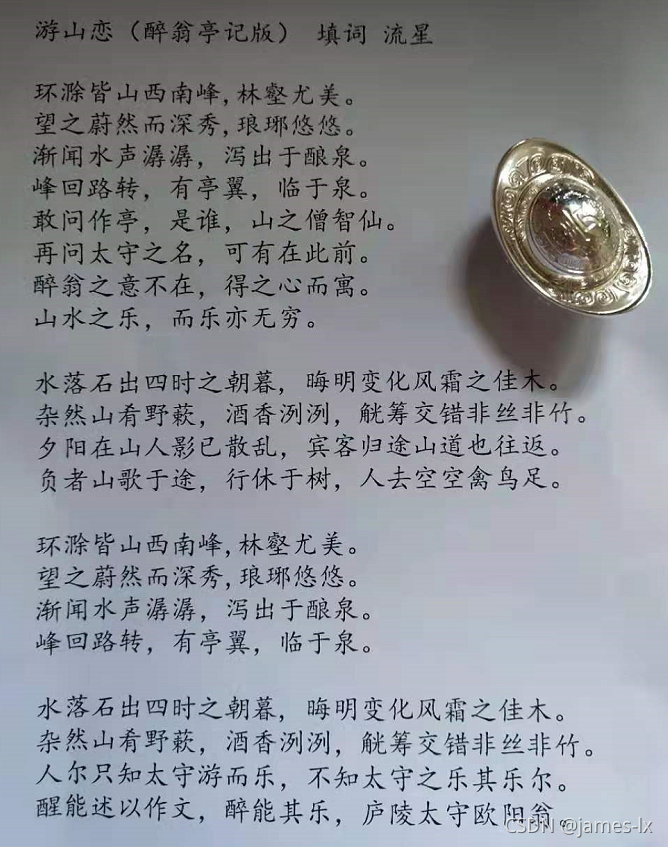 游山恋（醉翁亭记版） 填词 流星
环滁皆山西南峰,林壑尤美。
望之蔚然而深秀,琅琊悠悠。
渐闻水声潺潺，泻出于酿泉。
峰回路转，有亭翼，临于泉。
敢问作亭，是谁，山之僧智仙。
再问太守之名，可有在此前。
醉翁之意不在，得之心而寓。
山水之乐，而乐亦无穷。
水落石出四时之朝暮，晦明变化风霜之佳木。
杂然山肴野蔌，酒香洌洌，觥筹交错非丝非竹。
夕阳在山人影已散乱，宾客归途山道也往返。
负者山歌于途，行休于树，人去空空禽鸟足。
环滁皆山西南峰,林壑尤美。
望之蔚然而深秀,琅琊悠悠。
渐闻水声潺潺，泻出于酿泉。
峰回路转，有亭翼，临于泉。
水落石出四时之朝暮，晦明变化风霜之佳木。
杂然山肴野蔌，酒香洌洌，觥筹交错非丝非竹。
人尔只知太守游而乐，不知太守之乐其乐尔。
醒能述以作文，醉能其乐，庐陵太守欧阳翁。
CSDN @james-lx